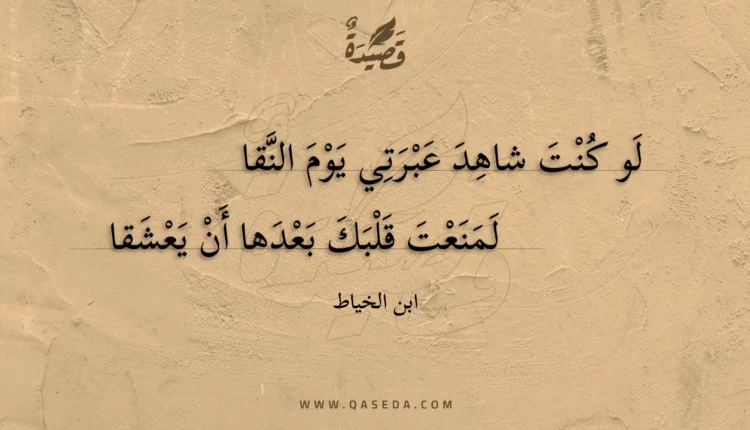 قَصِيْدَةٌ
لَو كُنْتَ شاهِدَ عَبْرَتِي يَوْمَ النَّقا
لَمَنَعْتَ قَلْبَكَ بَعْدَها أَنْ يَعْشَقا
ابن الخياط
WWW.QASEDA.COM